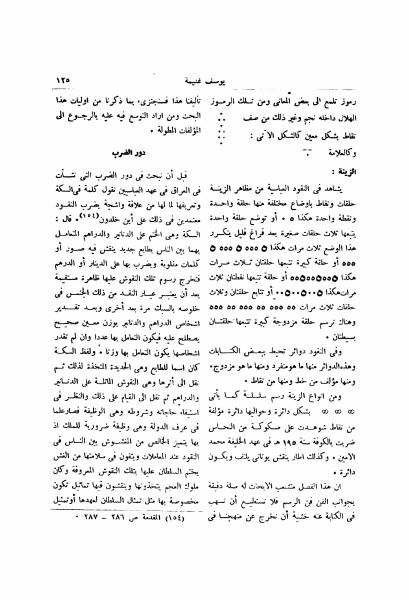 يوسف غنيمة
١٢٥
رموز تلمع الى بعض المعانى ومن تلك الرموز
الهلال داخله نجم وغير ذلك من صف
نقاط بشكل معين كالشكل الآتى :
وكالعلامة
الزينة :
يشاهد فى النقود العباسية من مظاهر الزينة
حلقات ونقاط باوضاع مختلفة منها حلقة واحدة
ونقطة واحدة هكذا ٥ ٠ أو توضع حلقة واحدة
يتبها ثلاث حلقات صغيرة بعد فراغ قليل يتكرر
هذا الوضع ثلاث مرات هكذا
أو حلقة كبيرة تتبعها حلقتان ثلاث مرات
هكذا أو حلقة تتبعها نقطتان ثلاث
مرات هكذا أو تتابع حلقتان وثلاث
حلقات ثلاث مرات
وهناك ترسم حلقة مزدوجة كبيرة تتبعها حلقتان
بسيطتان ٠
وفى النقود دوائر تحيط ببعض الكتابات
وهذه الدوائر منها ما هو منفرد ومنها ما هو مزدوج٠
ومنها مؤلف من خط ومنها من نقاط ٠
ومن انواع الزينة رسم سلسلة كما يأتى
بشكل دائرة وحواليها دائرة مؤلفة
من نقاط شوهدت على مسكوكة من النحاس
ضربت بالكوفة سنة ١٩٥ هـ فى عهد الخليفة محمد
الامين ٠ وكذلك اطار ينقش يونانى يلف ويكون
دائرة ٠
ان هذا الفصل متشعب الابحاث له صلة دقيقة
بجوانب الفن فن الرسم فلا نستطيع أن نسهب
فى الكتابة عنه خشية أن نخرج عن منهجنا فى
تأليفنا هذا فنجتزى، بما ذكرنا من اوليات هذا
البحث ومن اراد التوسع فيه عليه بالرجوع الى
المؤلفات المطولة ٠
دور الضرب
قبل أن نبحث فى دور الضرب التى نشأت
فى العراق فى عهد العباسيين نقول كلمة فى السكة
وتعريفها لما لها من علاقة واشجة بضرب النقود
معتمدين فى ذلك على أبن خلدون(١٥٤)٠ قال :
السكة وهى الختم على الدنانير والدراهم المتعامل
بهما بين الناس بطابع جديد ينقش فيه صور أو
كلمات مقلوبة ويضرب بها على الدينار أو الدرهم
فتخرج رسوم تلك النقوش عليها ظاهرة مستقيمة
بعد أن يعتبر عيار النقد من ذلك الجنس فى
خلوصه بالسبك مرة بعد أخرى وبعد تقدير
اشخاص الدراهم والدنانير بوزن معين صحيح
يصطلح عليه فيكون التعامل بها عددا وان لم تقدر
اشخاصها يكون التعامل بها وزنا ٠ ولفظ السكة
كان اسما للطابع وهى الحديدة المتخذة لذلك ثم
نقل الى أثرها وهى النقوش الماثلة على الدنانير
والدراهم ثم نقل الى القيام على ذلك والنظر فى
استيفاء حاجاته وشروطه وهى الوظيفة فصار علما
فى عرف الدولة وهى وظيفة ضرورية للملك اذ
بها يتميز الخالص من المغشوش بين الناس فى
النقود عند المعاملات ويتقون فى سلامتها من الغش
بختم السلطان عليها بتلك النقوش المعروفة وكان
ملوك العجم يتخذونها وينقشون فيها تماثيل تكون
مخصوصة بها مثل تمثال السلطان لعهدها أو تمثيل
(١٥٤) المقدمة ص ٢٨٦ – ٢٨٧ ٠